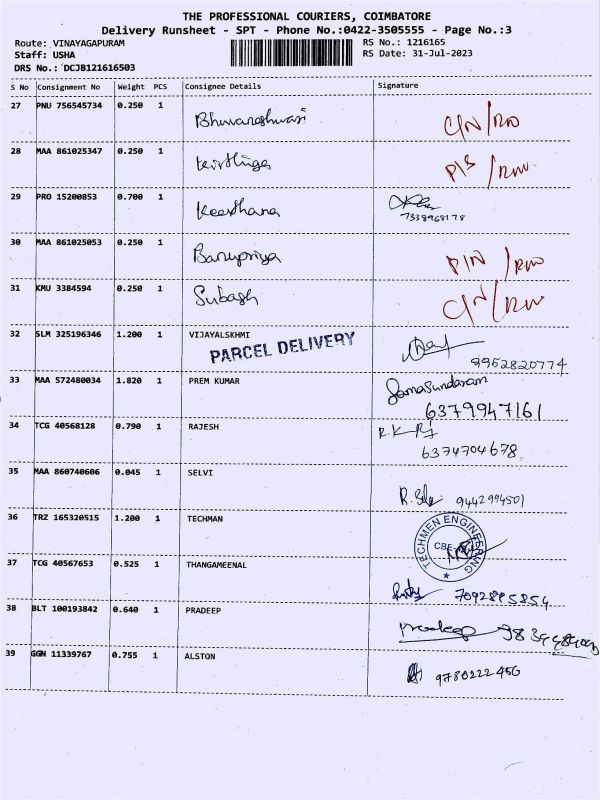 THE PROFESSIONAL COURIERS, COIMBATORE
Delivery Runsheet - SPT - Phone No.:0422-3505555 - Page No.:3
Route: VINAYAGAPURAM RS No.: 1216165
Staff: USHA RS Date: 31-Jul-2023
DRS No.: DCJB121616503
S No Consignment No Weight PCS Consignee Details Signature
27 PNU 756545734 0.250 1 Bhuvaneshwari C/N/RW
28 MAA 861025347 0.250 1 P/S/RW
29 PRO 15200853 0.700 1 Keerthana
7338968178
30 MAA 861025053 0.250 1 Banupriya P/N/RW
31 KMU 3384594 0.250 1 Subash C/N/RW
32 SLM 325196346 1.200 1 VIJAYALSKHMI
PARCEL DELIVERY
9952820774
33 MAA 572480034 1.820 1 PREM KUMAR Jamasundaram
6379947161
34 TCG 40568128 0.790 1 RAJESH R.K
6374704678
35 MAA 860740606 0.045 1 SELVI
R. Selv 9442994501
36 TRZ 165320515 1.200 1 TECHMAN TECHMEN ENGINEERING
CBE
37 TCG 40567653 0.525 1 THANGAMEENAL
7092895854
38 BLT 100193842 0.640 1 PRADEEP
Pradeep
39 GGN 11339767 0.755 1 ALSTON
9780222450